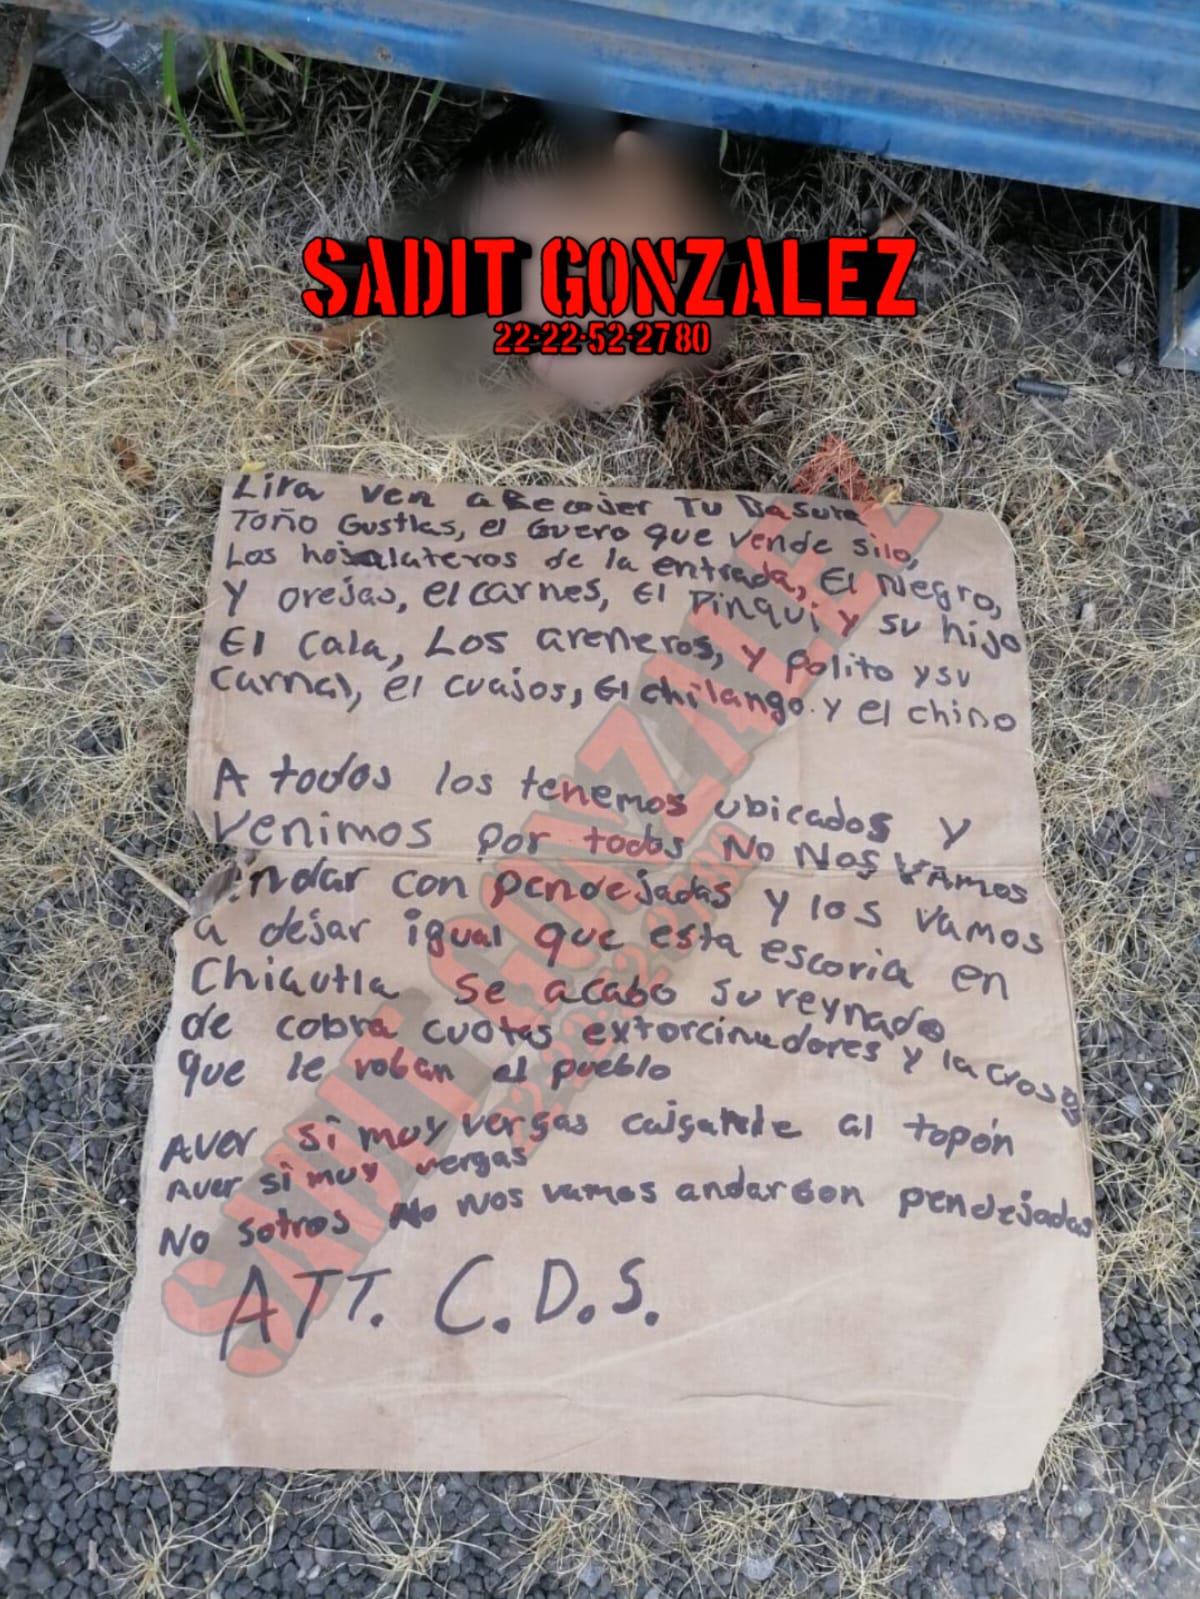 SADIT GONZALEZ
22-22-52-2780
Lira ven a Recojer Tu Basura
Toño Gustlas, el Guero que vende silo,
Los hojalateros de la entrada, El Negro,
Y orejas, el carnes, El Pinqui y su hijo
El Cala, Los areneros, y Polito y su
Carnal, el cuajos, El chilango. y el chino
A todos los tenemos ubicados y
Venimos por todos No Nos VAmos
Andar con pendejadas y los vamos
a dejar igual que esta escoria en
Chiautla Se acabo su reynado
de cobra cuotas extorcinadores y la
que le roban al pueblo
AVer si muy vergas caiganle al topón
Aver si muy vergas
No sotros No Nos vamos andar con pendejadas
ATT. C.D.S.
SADIT GONZALEZ
22-22-52-2780